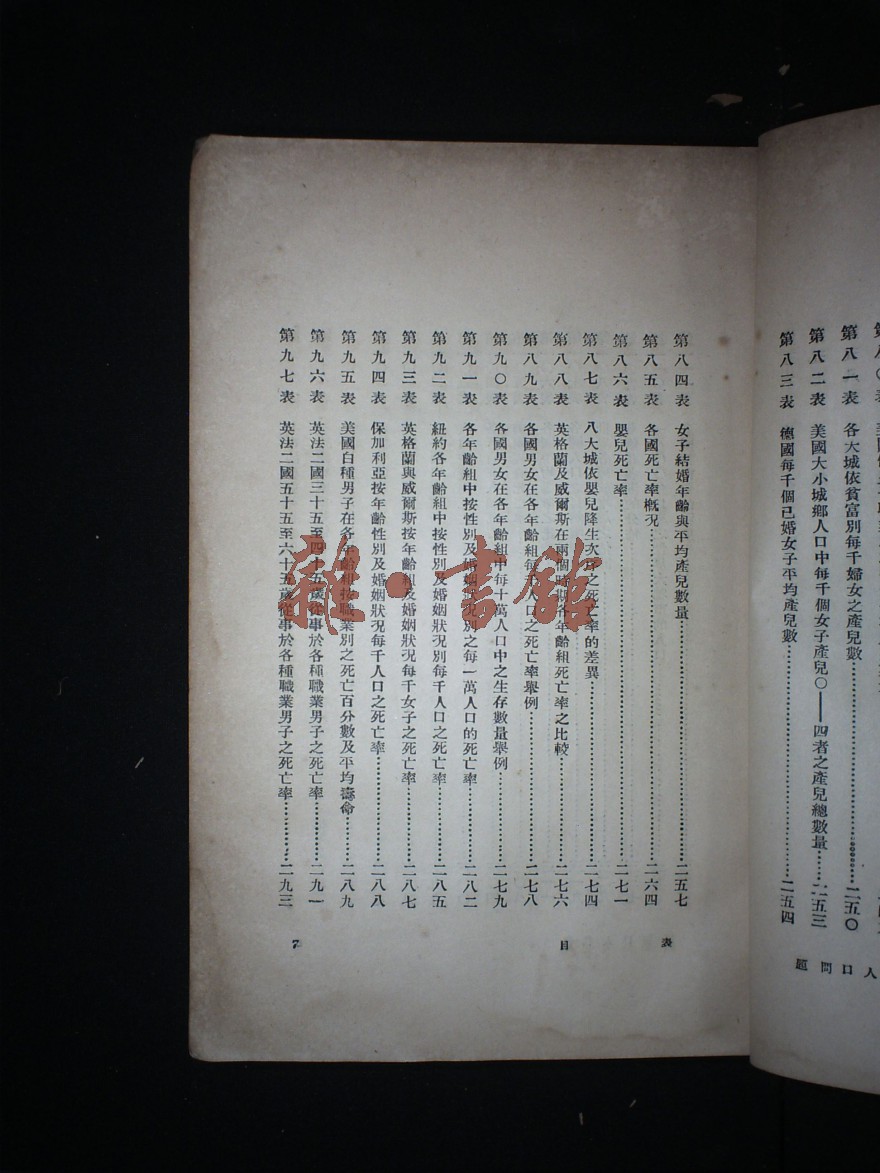 第八一表 各大城依貧富別每千婦女之產兒數……二五〇
第八二表 美國大小城鄉人口中每千個女子產兒〇——四者之產兒總數量……二五三
第八三表 德國每千個已婚女子平均產兒數……二五四
人口問題
第八四表 女子結婚年齡與平均產兒數量……二五七
第八五表 各國死亡率概况……二六四
第八六表 嬰兒死亡率……二七一
第八七表 八大城依嬰兒降生次序之死亡率的差異……二七四
第八八表 英格蘭及威爾斯在兩個時期各年齡組死亡率之比較……二七六
第八九表 各國男女在各年齡組每千人口之死亡率舉例……二七八
第九〇表 各國男女在各年齡組中每十萬人口中之生存數量舉例……二七九
第九一表 各年齡組中按性別及婚姻狀况別之每一萬人口的死亡率……二八二
第九二表 紐約各年齡組中按性別及婚姻狀况別每千人口之死亡率……二八五
第九三表 英格蘭與威爾斯按年齡組及婚姻狀况每千女子之死亡率……二八七
第九四表 保加利亞按年齡性別及婚姻狀况每千人口之死亡率……二八八
第九五表 美國白種男子在各年齡組按職業別之死亡百分數及平均壽命……二八九
第九六表 英法二國三十五至四十五歲從事於各種職業男子之死亡率……二九一
第九七表 英法二國五十五至六十五歲從事於各種職業男子之死亡率……二九三
表目
7
雜·書館